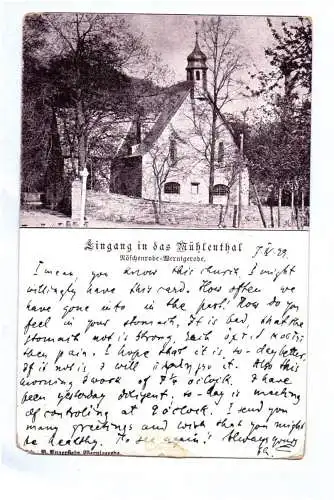 Eingang in das Mühlenthal
Nöschenrode-Wernigerode.
I mean, you know this church, I might
willingly have this card. How often we
have gone into in the past! How do you
feel in your stomach. It is bad, that the
stomach not is strong,
then pain. I hope that it is, to-day better,
If it not is, I will you it. Also this
morning I work of o'clock. I have
been yesterday diligent; to-day is
of controling at 2 o'clock! I send you
many greetings and wish that you might
be healthy. To see again! Always your